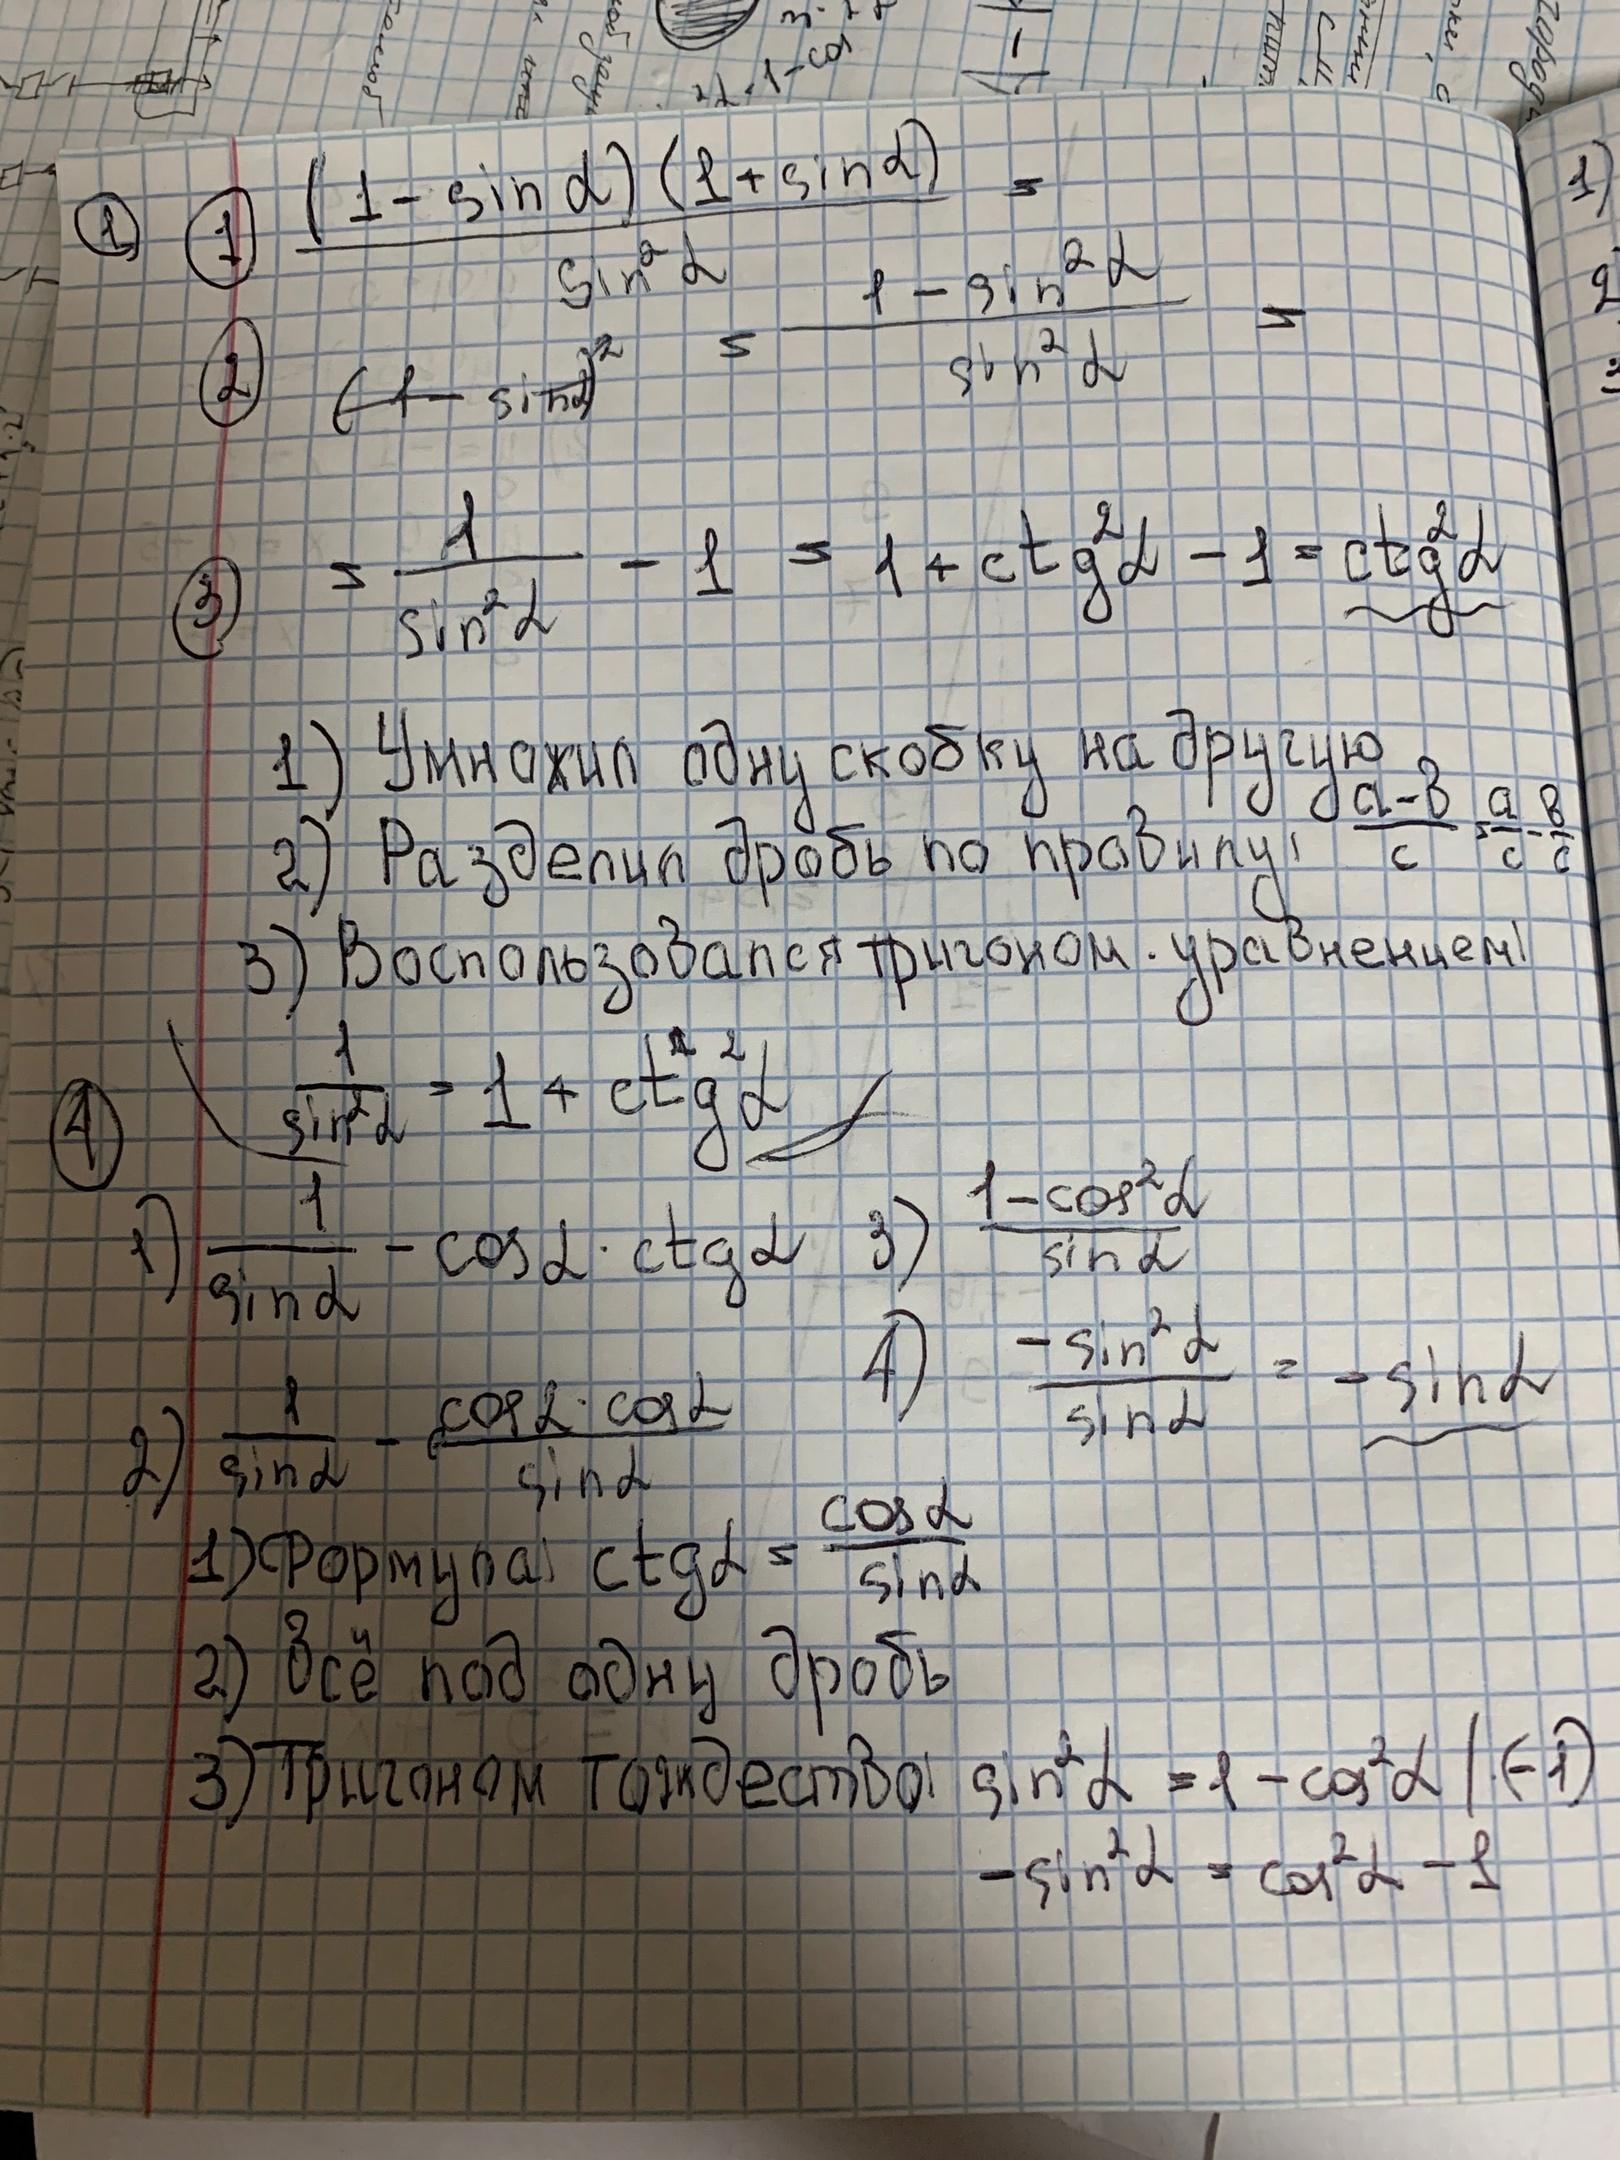 ① ① (1 - sin α)(1 + sin α) / sin²α =
② (1 - sin α)² = (1 - sin²α) / sin²α =
③ = 1 / sin²α - 1 = 1 + ctg²α - 1 = ctg²α
1) Умножил одну скобку на другую
2) Разделил дробь по правилу: (a-b)/c = a/c - b/c
3) Воспользовался тригоном. уравнением:
1 / sin²α = 1 + ctg²α
④
1) 1 / sin α - cos α · ctg α
2) 1 / sin α - cos α · cos α / sin α
3) (1 - cos²α) / sin α
4) -sin²α / sin α = -sin α
1) Формула: ctg α = cos α / sin α
2) Всё под одну дробь
3) Тригоном тождество: sin²α = 1 - cos²α | · (-1)
-sin²α = cos²α - 1
1)
2